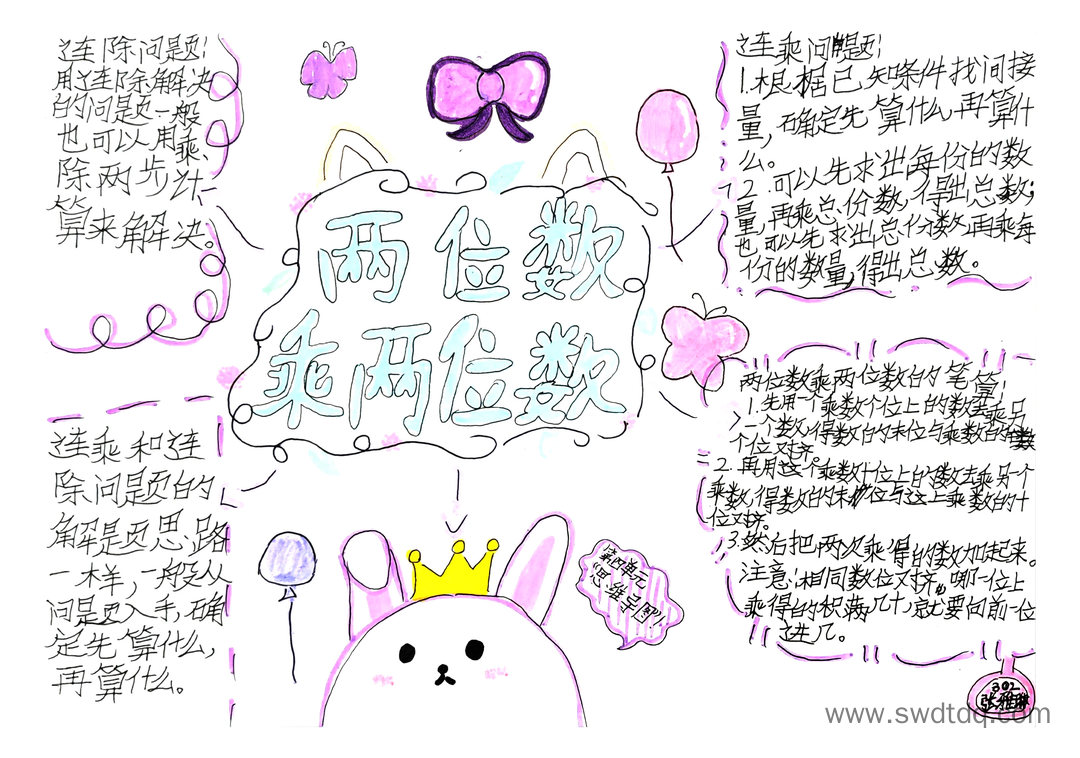 连除问题:
用连除解决
的问题一般
也可以用乘、
除两步计
算来解决。
两位数
乘两位数
连乘问题:
1.根据已知条件找间接
量,确定先算什么再算什
么。
2.可以先求出每份的数
量,再乘总份数,得出总数;
也可以先求出总份数,再乘每
份的数量,得出总数。
连乘和连
除问题的
解题思路
一样,一般从
问题入手,确
定先算什么,
再算什么。
两位数乘两位数的笔算:
1.先用一个乘数个位上的数去乘另
一个数,得数的末位与乘数的
个位对齐。
2.再用这个乘数十位上的数去乘另一个
乘数,得数的末位与这上乘数的十
位对齐。
3.然后把两次乘得的数加起来。
注意:相同数位对齐。哪一位上
乘得的积满几十,就要向前一位
进几。
第四单元
“思维导图”
302
张雅琳
www.swdtdq.com